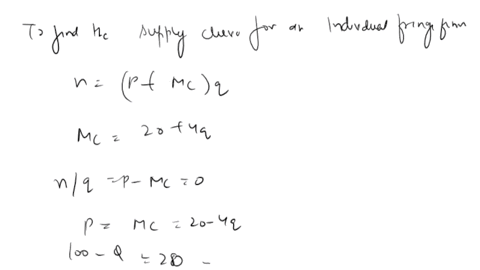 To find the supply curve for an Individual fringe firm
n = (P - Mc) q
Mc = 20 + 4q
n/q = P - Mc = 0
P = Mc = 20 - 4q
100 - Q = 20 -